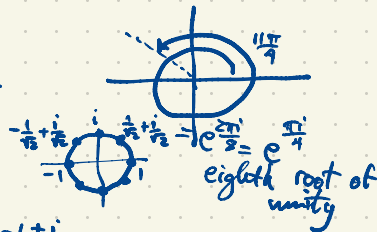 11π/4
-1/√2 + i/√2 i 1/√2 + i/√2 = e^{2πi/8} = e^{πi/4}
-1 1
eighth root of
unity